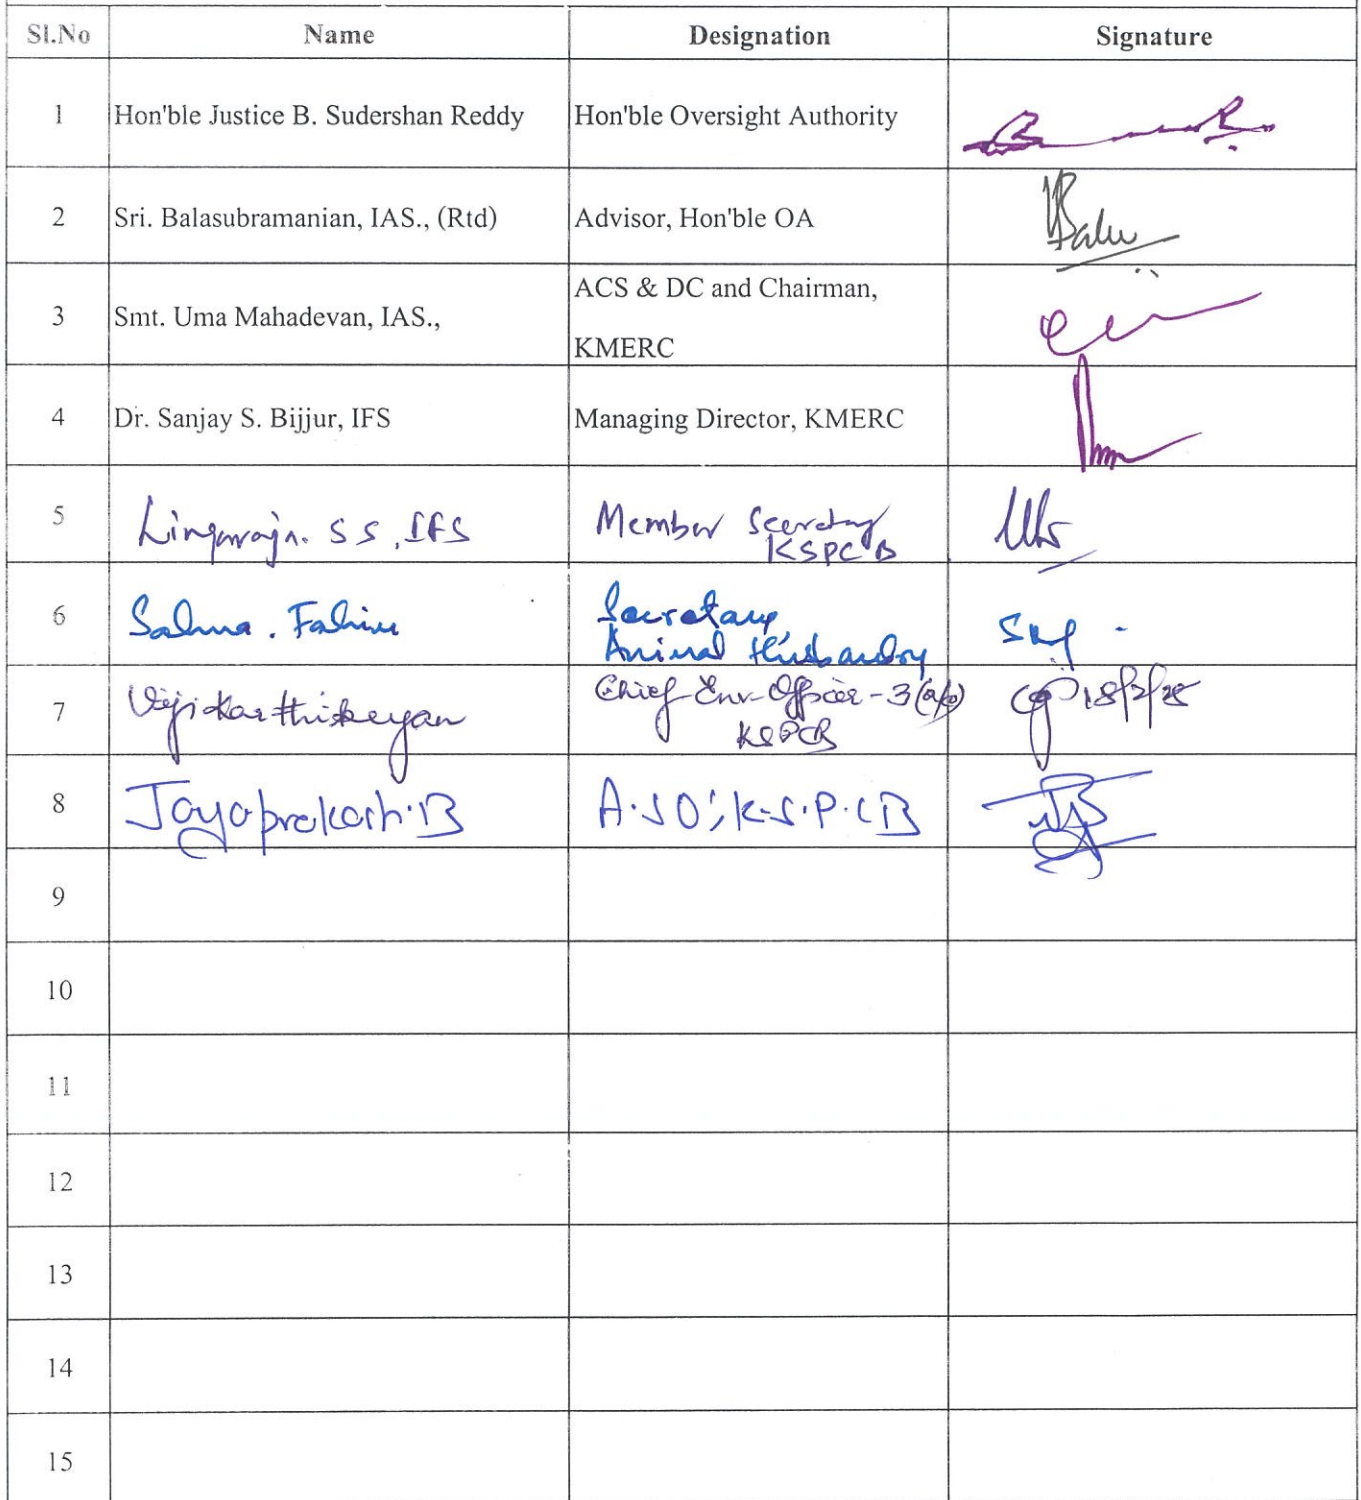 Sl.No Name Designation Signature
1 Hon'ble Justice B. Sudershan Reddy Hon'ble Oversight Authority
2 Sri. Balasubramanian, IAS., (Rtd) Advisor, Hon'ble OA Balu
3 Smt. Uma Mahadevan, IAS., ACS & DC and Chairman,
KMERC
4 Dr. Sanjay S. Bijjur, IFS Managing Director, KMERC
5 Lingaraja. S S, IFS Member Secretary
KSPCB
6 Salma. Fahim Secretary
Animal Husbandry
7 Vijikarthikeyan Chief Env. Officer-3
KSPCB
8 Jayaprakash.B A.S O; K.S.P.C B
9
10
11
12
13
14
15